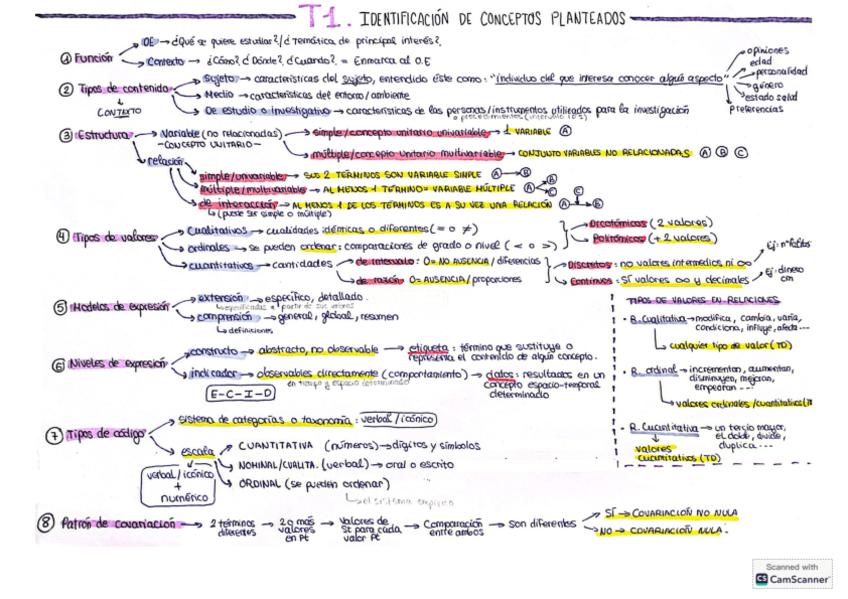 T1. IDENTIFICACIÓN DE CONCEPTOS PLANTEADOS
① Función → OE → ¿Qué se quiere estudiar?/¿Temática de principal interés?.
→ Contexto → ¿Cómo?, ¿Dónde?, ¿Cuándo?. = Enmarca al O.E
② Tipos de contenido → Sujeto → características del sujeto, entendido éste como: "individuo del que interesa conocer algún aspecto"
opiniones
edad
personalidad
género
estado salud
preferencias
↓ CONTEXTO
→ Medio → características del entorno/ambiente
→ De estudio o investigativo → características de las personas/instrumentos utilizados para la investigación
o procedimientos
③ Estructura → Variable (no relacionadas) → simple/concepto unitario univariable → 1 VARIABLE Ⓐ
- CONCEPTO UNITARIO -
→ múltiple/concepto unitario multivariable → CONJUNTO VARIABLES NO RELACIONADAS Ⓐ Ⓑ Ⓒ
→ relación
→ simple/univariable → SUS 2 TÉRMINOS SON VARIABLE SIMPLE Ⓐ → Ⓑ
→ múltiple/multivariable → AL MENOS 1 TÉRMINO = VARIABLE MÚLTIPLE Ⓐ → Ⓑ Ⓒ
→ de interacción → AL MENOS 1 DE LOS TÉRMINOS ES A SU VEZ UNA RELACIÓN Ⓐ → Ⓑ Ⓒ
↳ (puede ser simple o múltiple)
④ Tipos de valores → Cualitativos → cualidades idénticas o diferentes (= o ≠)
→ Dicotómicos (2 valores)
→ Politómicos (+2 valores)
→ ordinales → se pueden ordenar: comparaciones de grado o nivel (< o >)
→ cuantitativos → cantidades → de intervalo: 0 = NO AUSENCIA / diferencias
→ de razón: 0 = AUSENCIA / proporciones
→ Discretos: no valores intermedios ni ∞ → Ej: nº
→ Continuos: SÍ valores ∞ y decimales → Ej: dinero
cm
⑤ Modelos de expresión → extensión → específico, detallado.
↳ especificadas a partir de sus valores
→ comprensión → general, global, resumen
↳ definiciones
⑥ Niveles de expresión → constructo → abstracto, no observable → etiqueta: término que sustituye o
representa el contenido de algún concepto.
→ indicador → observables directamente (comportamiento) → datos: resultados en un
en tiempo y espacio determinado
concepto espacio-temporal
determinado
E-C-I-D
TIPOS DE VALORES EN RELACIONES
• R. Cualitativa → modifica, cambia, varía,
condiciona, influye, afecta ...
↳ cualquier tipo de valor (TD)
• R. ordinal → incrementan, aumentan,
disminuyen, mejoran,
empeoran ...
↳ valores ordinales/cuantitativos
• R. Cuantitativa → un tercio mayor,
el doble, divide,
duplica ...
↓
valores
cuantitativos (TD)
⑦ Tipos de código → sistema de categorías o taxonomía: verbal/icónico
→ escala → CUANTITATIVA (números) → dígitos y símbolos
→ NOMINAL/CUALITA. (verbal) → oral o escrito
→ ORDINAL (se pueden ordenar)
↳ el sistema empírico
verbal/icónico
+
numérico
⑧ Patrón de covariación → 2 términos
diferentes → 2 o más
valores
en Pt → Valores de
St para cada
valor Pt → Comparación
entre ambos → Son diferentes → SÍ → COVARIACIÓN NO NULA
→ NO → COVARIACIÓN NULA.
Scanned with
CS CamScanner